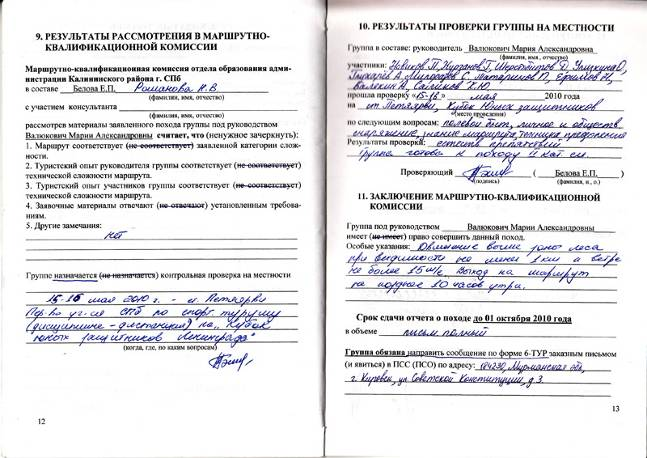 9. РЕЗУЛЬТАТЫ РАССМОТРЕНИЯ В МАРШРУТНО-
КВАЛИФИКАЦИОННОЙ КОМИССИИ
Маршрутно-квалификационная комиссия отдела образования адми-
нистрации Калининского района г. СПб
в составе Белова Е.П. Романова Н.В.
(фамилия, имя, отчество)
с участием консультанта
(фамилия, имя, отчество)
рассмотрев материалы заявленного похода группы под руководством
Валюкович Марии Александровны считает, что (ненужное зачеркнуть):
1. Маршрут соответствует (не соответствует) заявленной категории слож-
ности.
2. Туристский опыт руководителя группы соответствует (не соответствует)
технической сложности маршрута.
3. Туристский опыт участников группы соответствует (не соответствует)
технической сложности маршрута.
4. Заявочные материалы отвечают (не отвечают) установленным требова-
ниям.
5. Другие замечания:
нет
Группе назначается (не назначается) контрольная проверка на местности
15-16 мая 2010 г. - п. Петяярви
СПб по спорт. туризму
(дисциплина - дистанция) на „Кубок
юных защитников Ленинграда“
(когда, где, по каким вопросам)
12
10. РЕЗУЛЬТАТЫ ПРОВЕРКИ ГРУППЫ НА МЕСТНОСТИ
Группа в составе: руководитель Валюкович Мария Александровна
(фамилия, имя, отчество)
участники: Новиков П.
прошла проверку «15-16» мая 2010 года
на ст. Петяярви, Кубок Юных защитников
(место проведения)
по следующим вопросам: полевой быт, личное и обществ.
снаряжение, знание маршрута, техника преодоления
Результаты проверки: естеств. препятствий
Группа готова к походу II кат. сл.
Проверяющий ( Белова Е.П. )
(подпись) (фамилия, и., о.)
11. ЗАКЛЮЧЕНИЕ МАРШРУТНО-КВАЛИФИКАЦИОННОЙ
КОМИССИИ
Группа под руководством Валюкович Марии Александровны
имеет (не имеет) право совершить данный поход.
Особые указания: Движение выше зоны леса
при видимости не менее 1 км и ветре
не более 15 м/с. Выход на маршрут
не позднее 10 часов утра.
Срок сдачи отчета о походе до 01 октября 2010 года
в объеме письм. полный
Группа обязана направить сообщение по форме 6-ТУР заказным письмом
(и явиться) в ПСС (ПСО) по адресу: 184230, Мурманская обл,
г. Кировск, ул Советской Конституции, д.3.
13